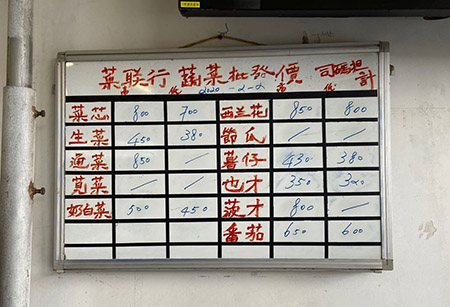 菜联行 蔬菜批發價 司碼担計
高 低 2020-2-2 高 低
菜芯 800 700 西兰花 850 800
生菜 450 380 節瓜 / /
通菜 850 / 薯仔 430 380
苋菜 / / 也才 350 320
奶白菜 500 450 茨才 800 /
番茄 650 600